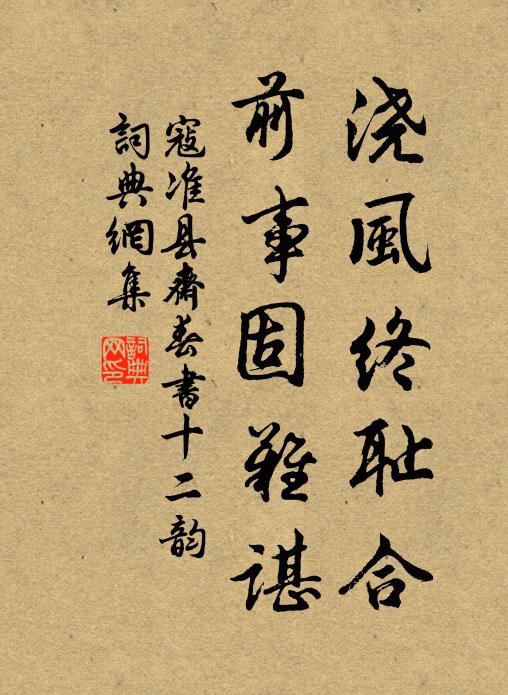 浇風终耻合
前事固難谌
寇准县斋春書十二韵
詞典網集
詞典
网印